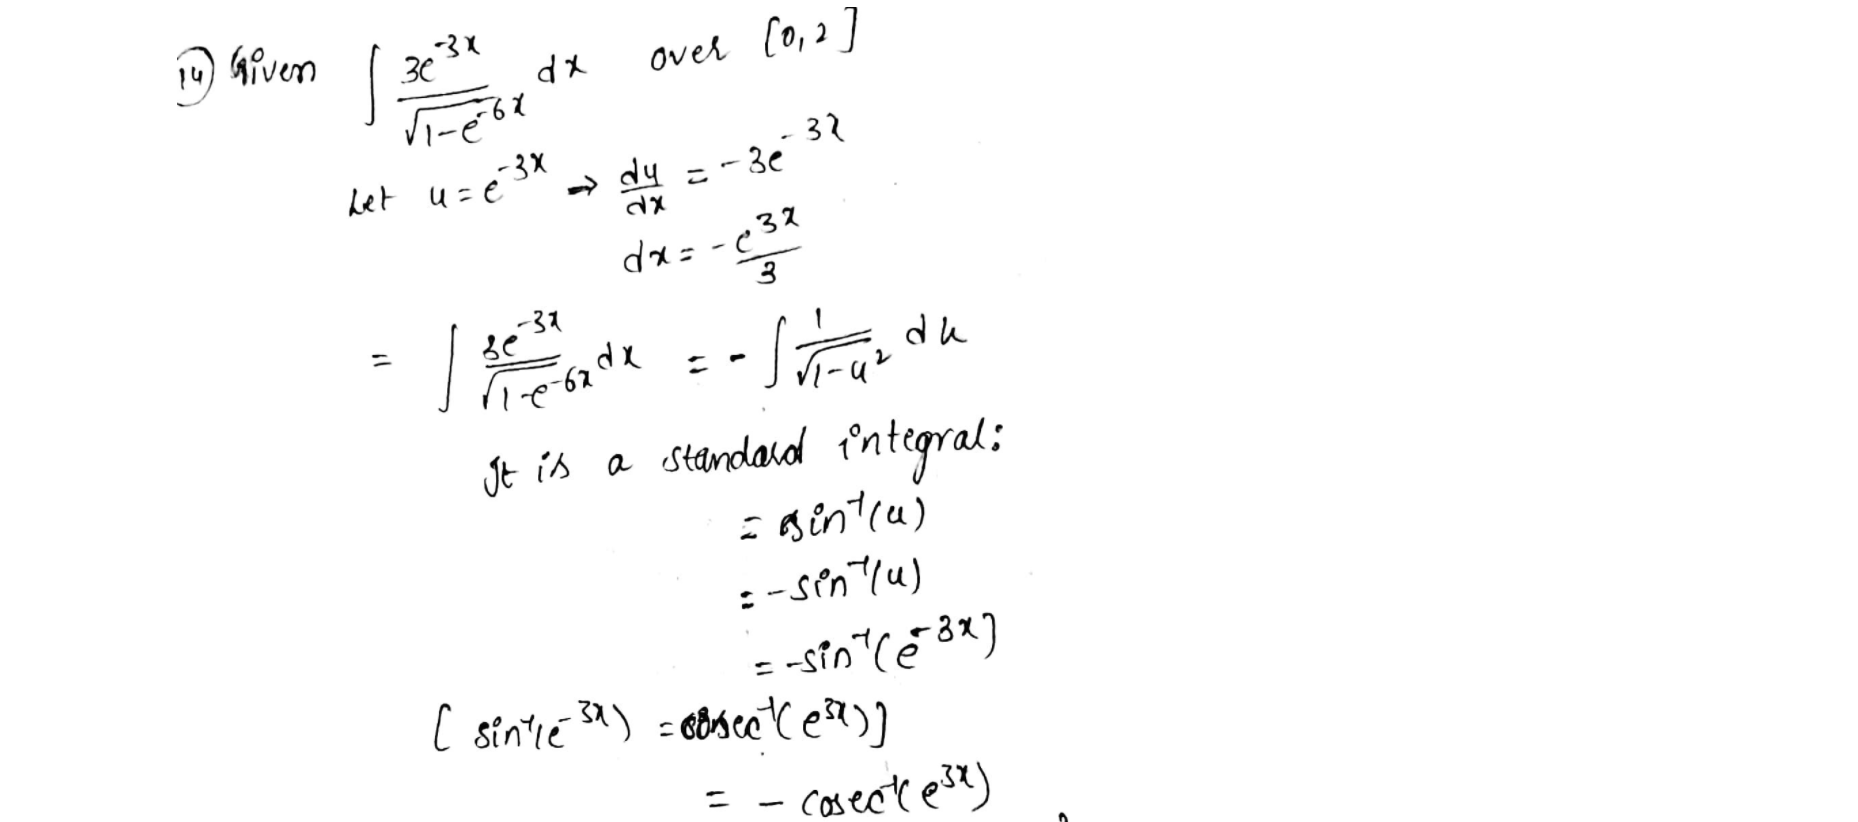 14) Given ∫ 3e^-3x / √1-e^-6x dx over [0,2]
Let u = e^-3x ⇒ du/dx = -3e^-3x
dx = -e^3x / 3
= ∫ 3e^-3x / √1-e^-6x dx = - ∫ 1 / √1-u^2 du
It is a standard integral:
= sin^-1(u)
= -sin^-1(u)
= -sin^-1(e^-3x]
[ sin^-1(e^-3x) = cosec^-1(e^3x)]
= - cosec^-1(e^3x)